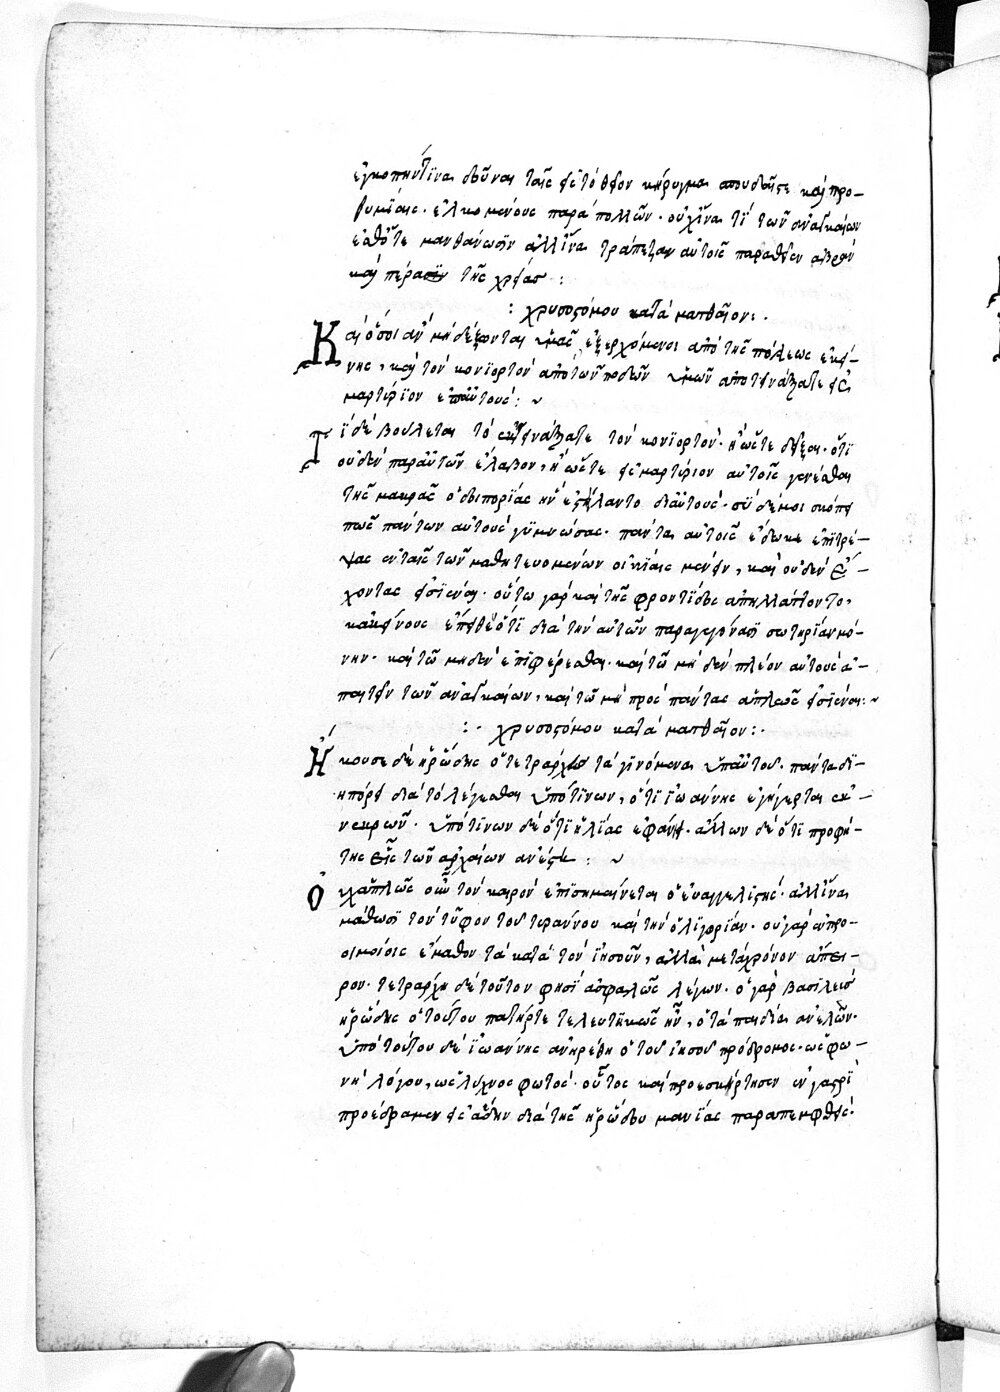 ἐγκοπήν τινα δοῦναι ταῖς εἰς τὸ θεῖον κήρυγμα σπουδῇ τε καὶ προ-
θυμίαις. ἑλκομένους παρὰ πολλῶν. οὐχ ἵνα τὶ τῶν ἀναγκαίων
μανθάνωσιν ἀλλ' ἵνα τράπεζαν αὐτοῖς παραθεῖεν ἁβρὰν
καὶ πέρα τῆς χρείας :
: χρυσοστόμου κατὰ ματθαῖον :.
Καὶ ὅσοι ἂν μὴ δέξονται ὑμᾶς, ἐξερχόμενοι ἀπὸ τῆς πόλεως ἐκεί-
νης, καὶ τὸν κονιορτὸν ἀπὸ τῶν ποδῶν ὑμῶν ἀποτινάξατε εἰς
μαρτύριον ἐπ' αὐτούς : ~
Τί δὲ βούλεται τὸ ἐκτινάξατε τὸν κονιορτόν. ἢ ὥστε δεῖξαι. ὅτι
οὐδὲν παρ' αὐτῶν ἔλαβον, ἢ ὥστε εἰς μαρτύριον αὐτοῖς γενέσθαι
τῆς μακρᾶς ὁδοιπορίας ἣν ἐστείλαντο δι' αὐτούς. σὺ δέ μοι σκόπει
πῶς πάντων αὐτοὺς γυμνώσας. πάντα αὐτοῖς ἔδωκε ἐπιτρέ-
ψας ἐν ταῖς τῶν μαθητευομένων οἰκίαις μένειν, καὶ οὐδὲν ἔ-
χοντας εἰσιέναι. οὕτω γὰρ καὶ τῆς φροντίδος ἀπηλλάττοντο,
κἀκείνους ἔπειθε ὅτι διὰ τὴν αὐτῶν παραγεγόνασι σωτηρίαν μό-
νην. καὶ τῶ μηδὲν ἐπιφέρεσθαι. καὶ τῶ μηδὲν πλέον αὐτοὺς ἀ-
παιτεῖν τῶν ἀναγκαίων, καὶ τῶ μὴ πρὸς πάντας ἁπλῶς εἰσιέναι : ~
: · χρυσοστόμου κατὰ ματθαῖον : ·
Ἤκουσε δὲ ἡρώδης ὁ τετράρχης τὰ γινόμενα ὑπ' αὐτοῦ. πάντα δι-
ηπόρει διὰ τὸ λέγεσθαι ὑπό τινων, ὅτι ἰωάννης ἐγήγερται ἐκ -
νεκρῶν. ὑπό τινων δὲ ὅτι ἠλίας ἐφάνη. ἄλλων δὲ ὅτι προφή-
της εἷς τῶν ἀρχαίων ἀνέστη : ~
Οὐχ ἁπλῶς οὖν τὸν καιρὸν ἐπισημαίνεται ὁ εὐαγγελιστής. ἀλλ' ἵνα
μάθωσι τὸν τῦφον τοῦ τυράννου καὶ τὴν ὀλιγωρίαν. οὐ γὰρ ἐν προ-
οιμίοις ἔμαθον τὰ κατὰ τὸν ἰησοῦν, ἀλλὰ μετὰ χρόνον ἄπει-
ρον. τετράρχη δὲ τοῦτον φησὶ ἀσφαλῶς λέγων. ὁ γὰρ βασιλεὺς
ἡρώδης ὁ τούτου πατὴρ τετελευτηκὼς ἦν, ὁ τὰ παιδία ἀνελών.
ὑπὸ τούτου δὲ ἰωάννης ἀνηρέθη ὁ τοῦ ἰησοῦ πρόδρομος. ὡς φω-
νὴ λόγου, ὡς λύχνος φωτός. οὗτος καὶ προεσκίρτησεν ἐν γαστρὶ
προέδραμεν εἰς ἅδην διὰ τῆς ἡρώδου μανίας παραπεμφθείς.